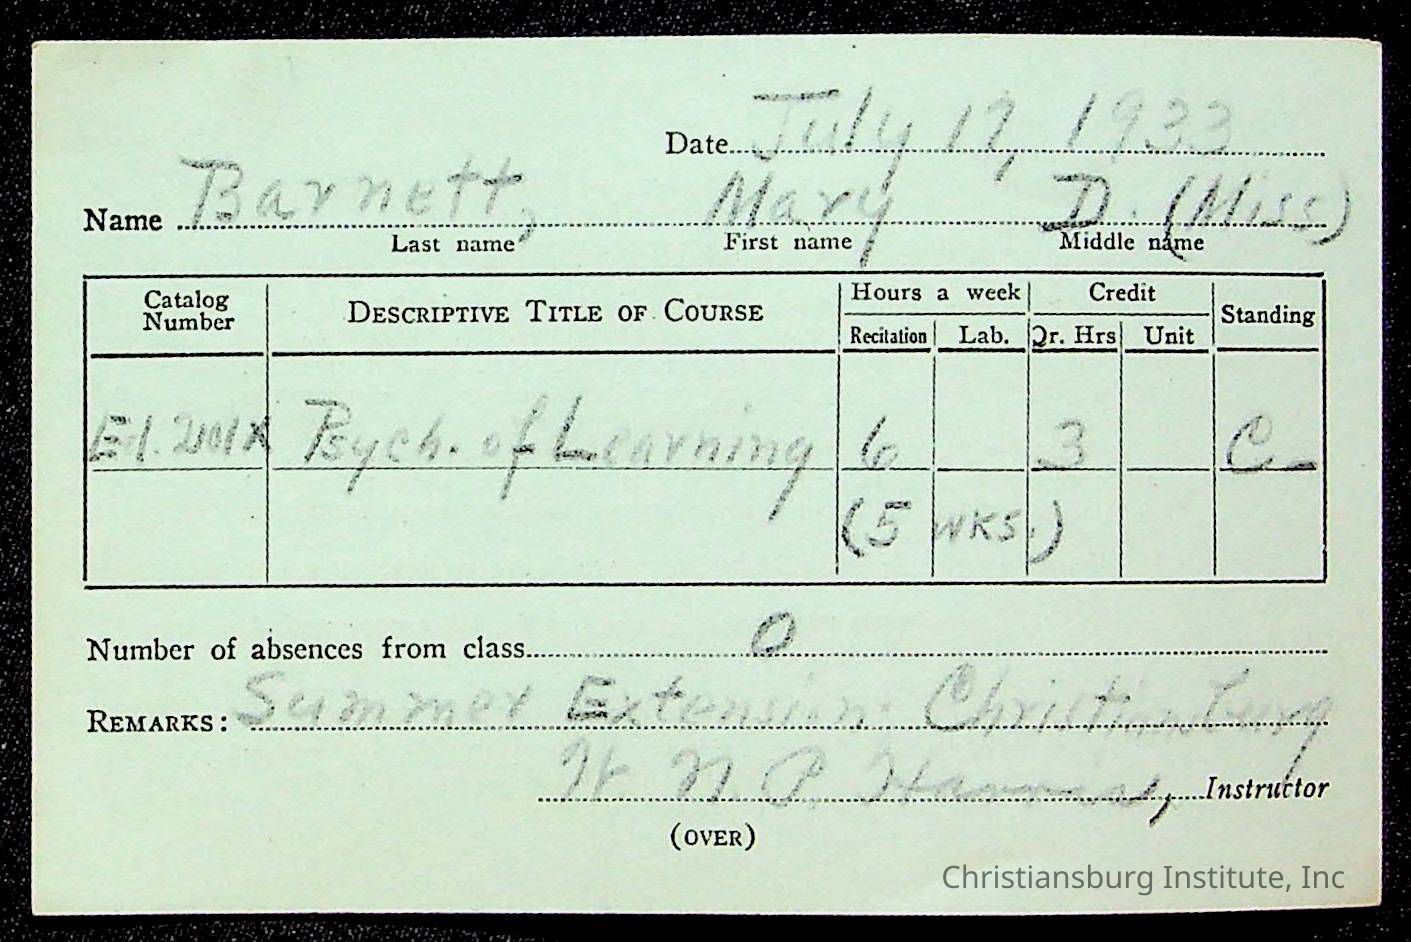 Date July 17, 1933
Name Barnett, Mary D. (Miss)
Last name First name Middle name
Catalog Number DESCRIPTIVE TITLE OF COURSE Hours a week Credit Standing
Recitation Lab. Qr. Hrs Unit
Ed. 201X Psych. of Learning 6 3 C-
(5 wks.)
Number of absences from class 0
REMARKS: Summer Extension: Christiansburg
N. P. Harris, Instructor
(OVER)
Christiansburg Institute, Inc